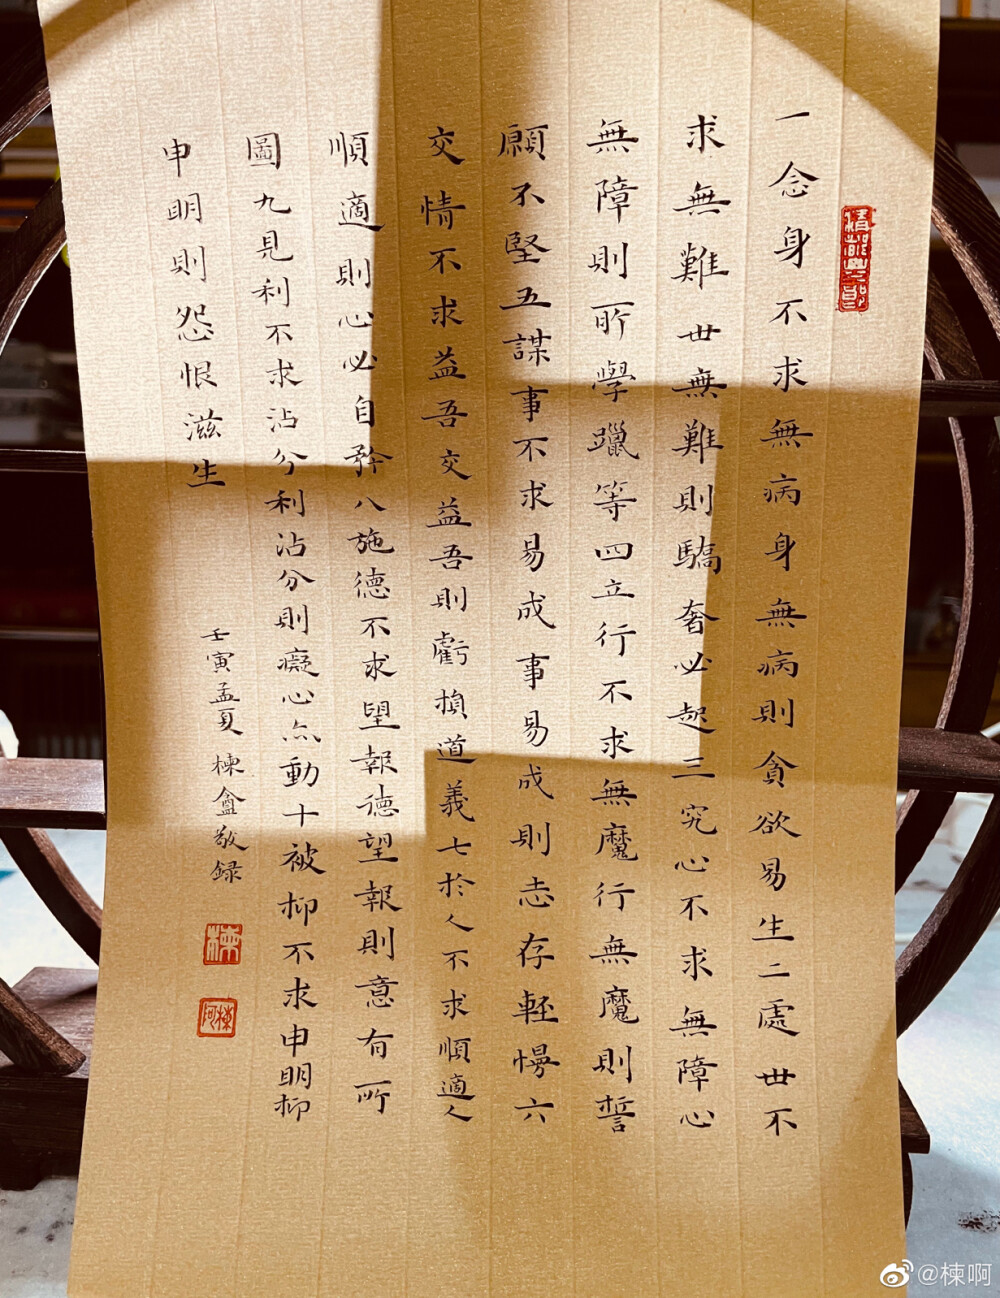 一念身不求無病身無病則貪欲易生二處世不
求無難世無難則驕奢必起三究心不求無障心
無障則所學躐等四立行不求無魔行無魔則誓
願不堅五謀事不求易成事易成則志存輕慢六
交情不求益吾交益吾則虧損道義七於人不求順適人
順適則心必自矜八施德不求望報德望報則意有所
圖九見利不求沾分利沾分則癡心亦動十被抑不求申明抑
申明則怨恨滋生
壬寅孟夏楝盦敬録
楝
阿楝
@楝啊